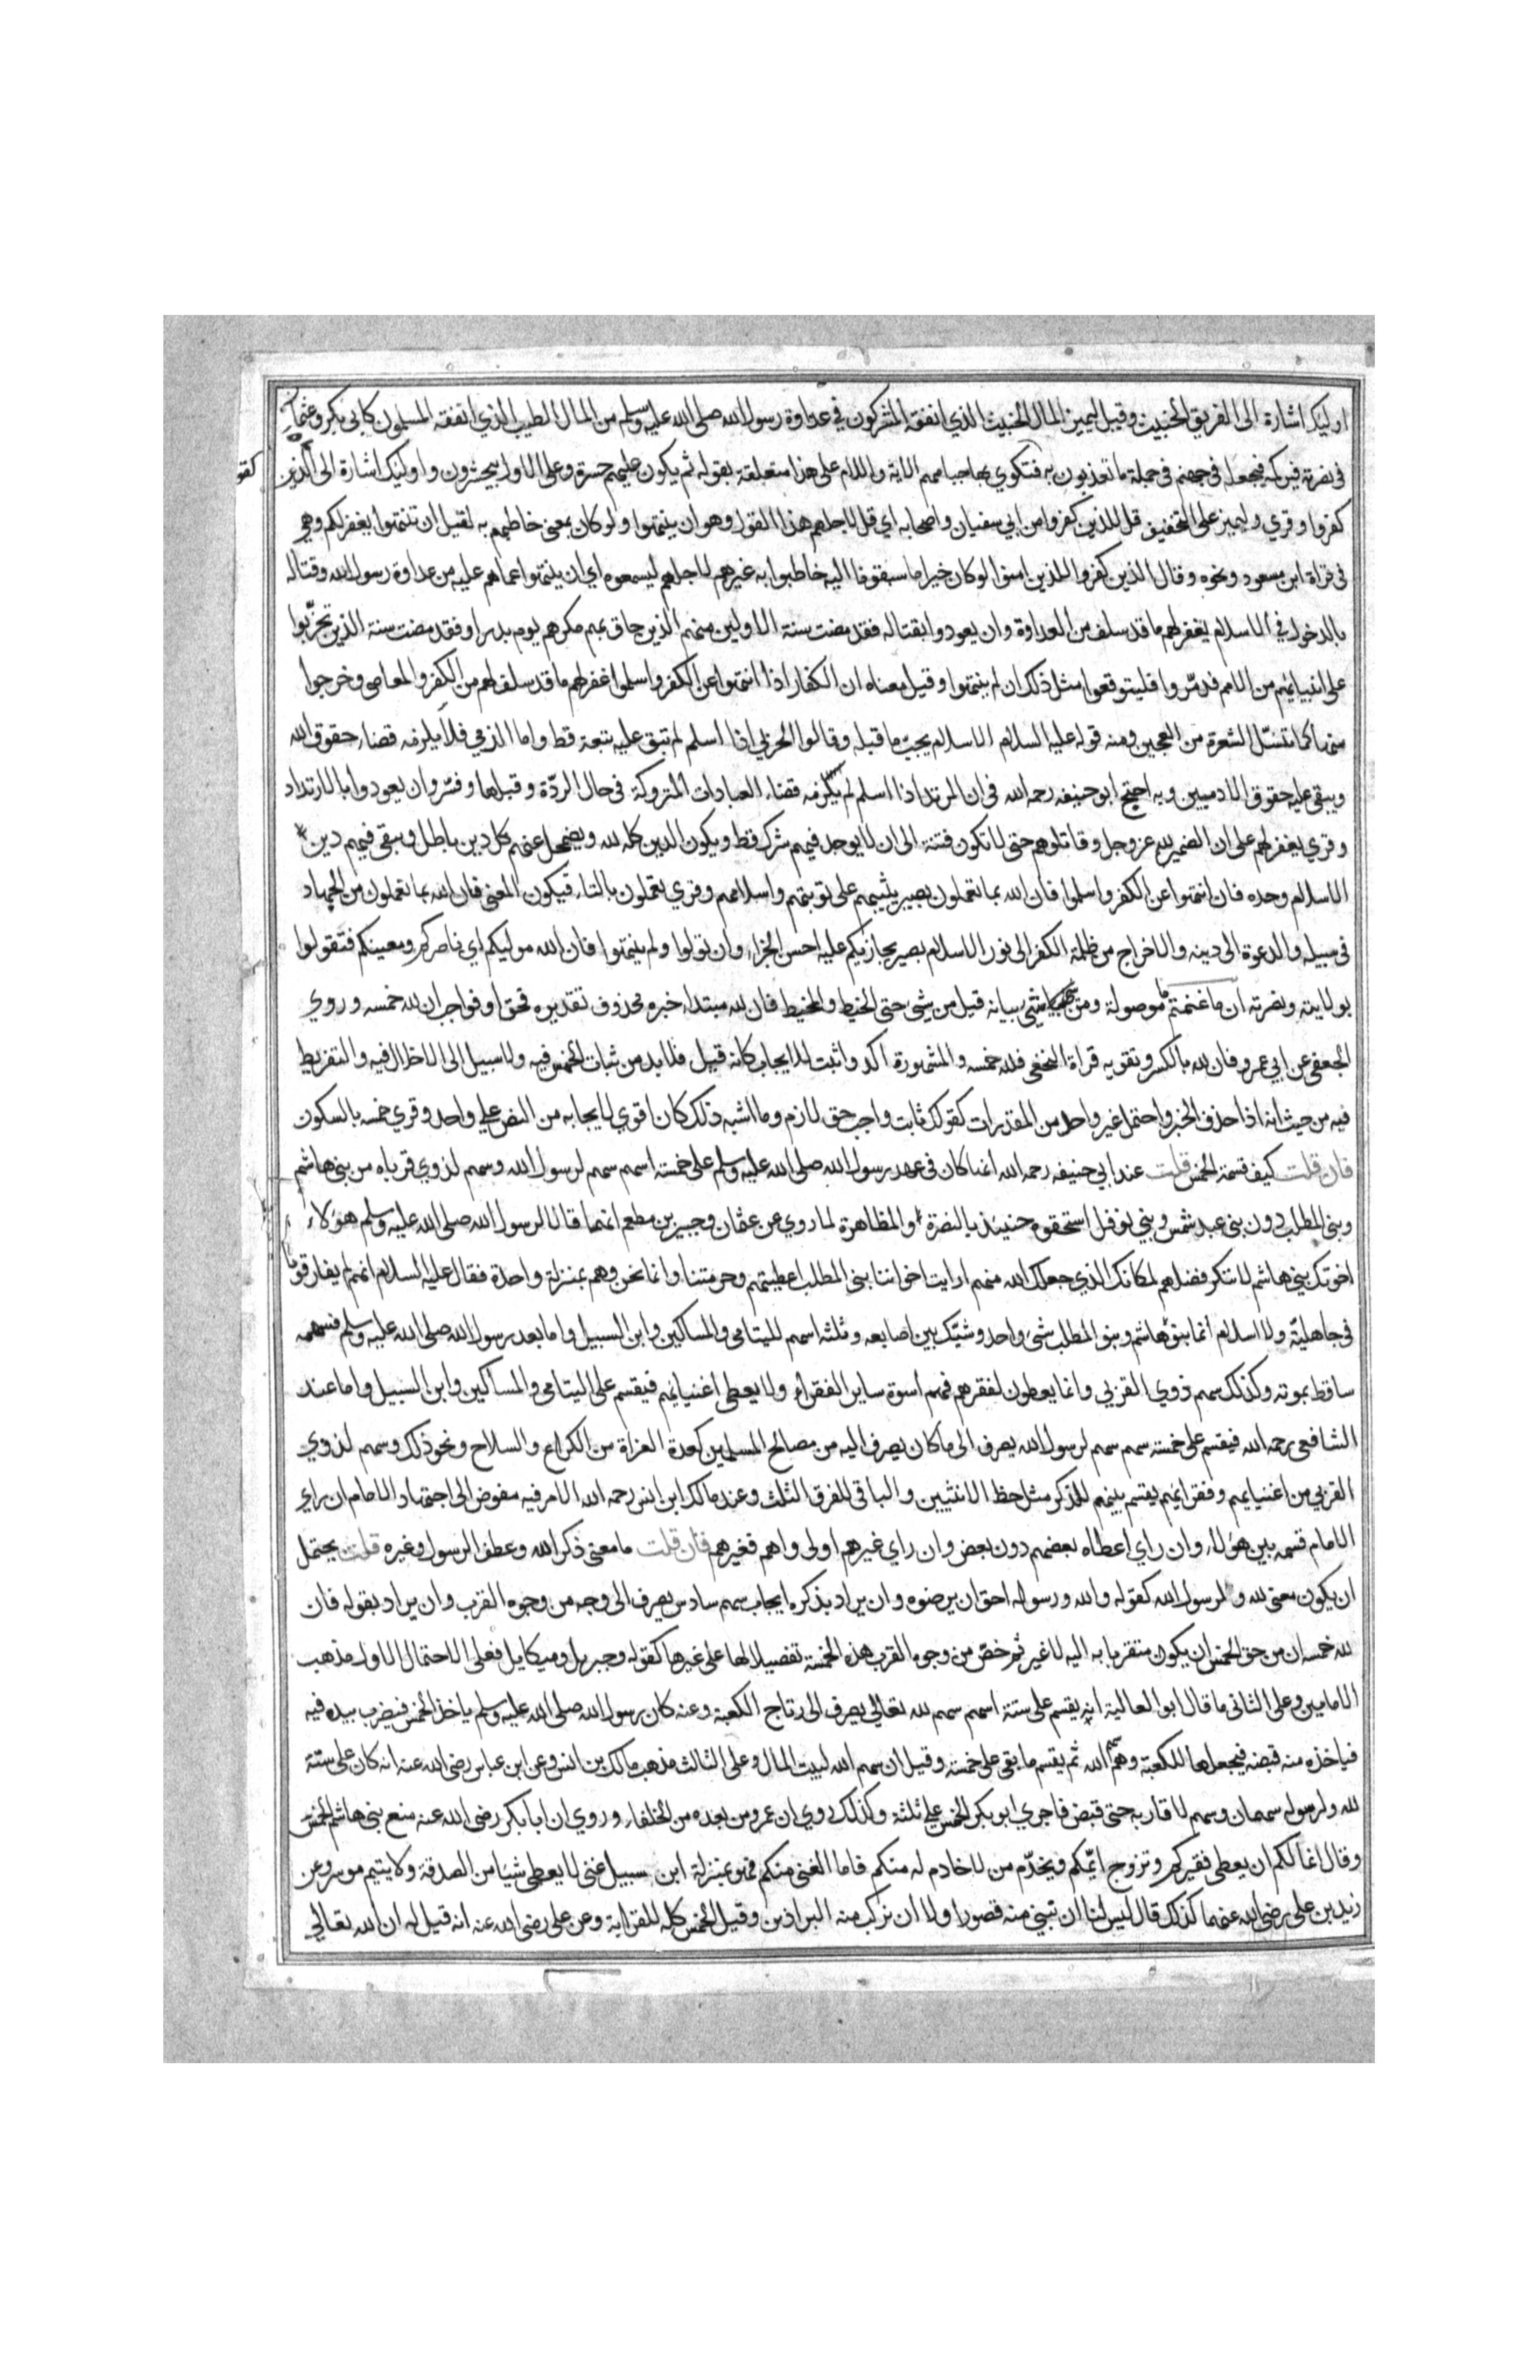 اوليك اشارة الى الفريق الخبيث وقيل ليميز المال الخبيث الذي انفقه المشركون في عداوة رسول الله صلى الله عليه وسلم من المال الطيب الذي انفقه المسلمون كابي بكر وعثمان
في نصرته فيركمه فيجعله في جهنم في جملة ما تعذبون به فتكوي بها جباههم الاية واللام على هذا متعلقة بقوله ثم يكون عليهم حسرة وعلى الاول بيحشرون واوليك اشارة الى الذين
كقو
كفروا وقري وليميز على التخفيف قل للذين كفروا من ابي سفيان واصحابه اي قل لاجلهم هذا القول وهو ان ينتهوا ولو كان بمعنى خاطبهم به لقيل ان تنتهوا يغفر لكم وهي
في قراة ابن مسعود ونحوه وقال الذين كفروا للذين امنوا لو كان خيرا ما سبقونا اليه خاطبوا به غيرهم لاجلهم ليسمعوه اي ان ينتهوا عما هم عليه من عداوة رسول الله وقتاله
بالدخول في الاسلام يغفر لهم ما قد سلف من العداوة وان يعودوا بقتاله فقد مضت سنة الاولين منهم الذين حاق بهم مكرهم يوم بدر او فقد مضت سنة الذين تحزبوا
على انبيائهم من الامم فدمروا فليتوقعوا مثل ذلك ان لم ينتهوا وقيل معناه ان الكفار اذا انتهوا عن الكفر واسلموا غفر لهم ما قد سلف لهم من الكفر والمعاصي وخرجوا
منها كما تنسل الشعرة من العجين ومنه قوله عليه السلام الاسلام يجب ما قبله وقالوا الحربي اذا اسلم لم تبق عليه تبعة قط واما الذمي فلا يلزمه قضاء حقوق الله
ويبقى عليه حقوق الادميين وبه احتج ابو حنيفه رحمه الله في ان المرتد اذا اسلم لم يلزمه قضاء العبادات المتروكة في حال الردة وقبلها وفسر وان يعودوا بالارتداد
وقري يغفر لهم على ان الضمير لله عز وجل وقاتلوهم حتى لا تكون فتنة الى ان لا يوجد فيهم شرك قط ويكون الدين كله لله ويضمحل عنهم كل دين باطل ويبقى فيهم دين
الاسلام وحده فان انتهوا عن الكفر واسلموا فان الله بما تعملون بصير يثيبهم على توبتهم واسلامهم وقري يعملون بالتاء فيكون المعنى فان الله بما تعملون من الجهاد
في سبيله والدعوة الى دينه والاخراج من ظلمة الكفر الى نور الاسلام بصير يجازيكم عليه احسن الجزاء وان تولوا ولم ينتهوا فان الله موليكم اي ناصركم ومعينكم فثقولوا
بولايته ونصرته ان ما غنمتم ما موصولة ومن شي بيانه قيل من شي حتى الخيط والمخيط فان لله مبتداء خبره محذوف تقديره فحق او فواجب ان لله خمسه وروي
الجعفي عن ابي عمرو فان لله بالكسر وتقويه قراة النخعي فلله خمسه والمشهورة اكد واثبت للايجاب كانه قيل فلابد من ثبات الخمس فيه ولا سبيل الى الاخلال فيه والتفريط
فيه من حيث انه اذا حذف الخبر واحتمل غير واحد من المقدرات كقولك ثابت واجب حق لازم وما اشبه ذلك كان اقوي لايجابه من النص على واحد وقري خمسه بالسكون
فان قلت كيف قسمة الخمس قلت عند ابي حنيفه رحمه الله انها كان في عهد رسول الله صلى الله عليه وسلم على خمسة اسهم سهم لرسول الله وسهم لذوي قرباه من بني هاشم
وبني المطلب دون بني عبد شمس وبني نوفل استحقوه حنيئذ بالنصرة والمظاهرة لما روي عن عثمان وجبير بن مطعم انهما قالا لرسول الله صلى الله عليه وسلم هولاء
اخوتك بني هاشم لا ننكر فضلهم لمكانك الذي جعلك الله منهم ارايت اخواننا بني المطلب اعطيتهم وحرمتنا وانما نحن وهم بمنزلة واحدة فقال عليه السلام انهم لم يفارقونا
في جاهلية ولا اسلام انما بنو هاشم وبنو المطلب شيء واحد وشبك بين اصابعه وثلثه اسهم لليتامى والمساكين وابن السبيل واما بعد رسول الله صلى الله عليه وسلم فسهمه
ساقط بموته وكذلك سهم ذوي القربي وانما يعطون لفقرهم فهم اسوة ساير الفقراء ولا يعطى اغنيائهم فيقسم على اليتامى والمساكين وابن السبيل واما عند
الشافعي رحمه الله فيقسم على خمسة سهم سهم لرسول الله يصرف الى ما كان يصرف اليه من مصالح المسلمين كعدة الغزاة من الكراع والسلاح ونحو ذلك وسهم لذوي
القربي من اغنيايهم وفقرائهم يقسم بينهم للذكر مثل حظ الانثيين والباقي للفرق الثلث وعند مالك ابن انس رحمه الله الامر فيه مفوض الى اجتهاد الامام ان راي
الامام قسمه بين هؤلاء وان راي اعطاه بعضهم دون بعض وان راي غيرهم اولى واهم فغيرهم فان قلت ما معنى ذكر الله وعطف الرسول وغيره قلت يحتمل
ان يكون معنى لله والرسول الله كقوله والله ورسوله احق ان يرضوه وان يراد بذكره ايجاب سهم سادس يصرف الى وجه من وجوه القرب وان يراد بقوله فان
لله خمسه ان من حق الخمس ان يكون متقربا به اليه لا غير ثم خص من وجوه القرب هذه الخمسة تفضيلا لها على غيرها كقوله وجبريل وميكايل فعلى الاحتمال الاول مذهب
الامامين وعلى الثاني ما قال ابو العالية انه يقسم على ستة اسهم سهم لله تعالى يصرف الى رتاج الكعبة وعنه كان رسول الله صلى الله عليه وسلم ياخذ الخمس فيضرب بيده فيه
فياخذه منه قبضه فيجعلها للكعبة وهو سهم الله ثم يقسم ما بقى على خمسة وقيل ان سهم الله لبيت المال وعلى الثالث مذهب مالك بن انس وعن ابن عباس رضى الله عنه انه كان على ستة
لله ولرسوله سهمان وسهم لاقاربه حتى قبض فاجري ابو بكر الخمس على ثلثة وكذلك روي ان عمر ومن بعده من الخلفاء وروي ان ابا بكر رضى الله عنه منع بني هاشم الخمس
وقال انما لكم ان يعطى فقيركم وتزوج ايمكم ويخدم من لا خادم له منكم فاما الغني منكم فهو بمنزلة ابن سبيل غني لا يعطى شيا من الصدقة ولا يتيم موسر وعن
زيد بن على رضى الله عنهما كذلك قال ليس لنا ان نبني منه قصورا ولا ان نركب منه البراذين وقيل الخمس كله للقرابة وعن على رضى الله عنه انه قيل له ان الله تعالى